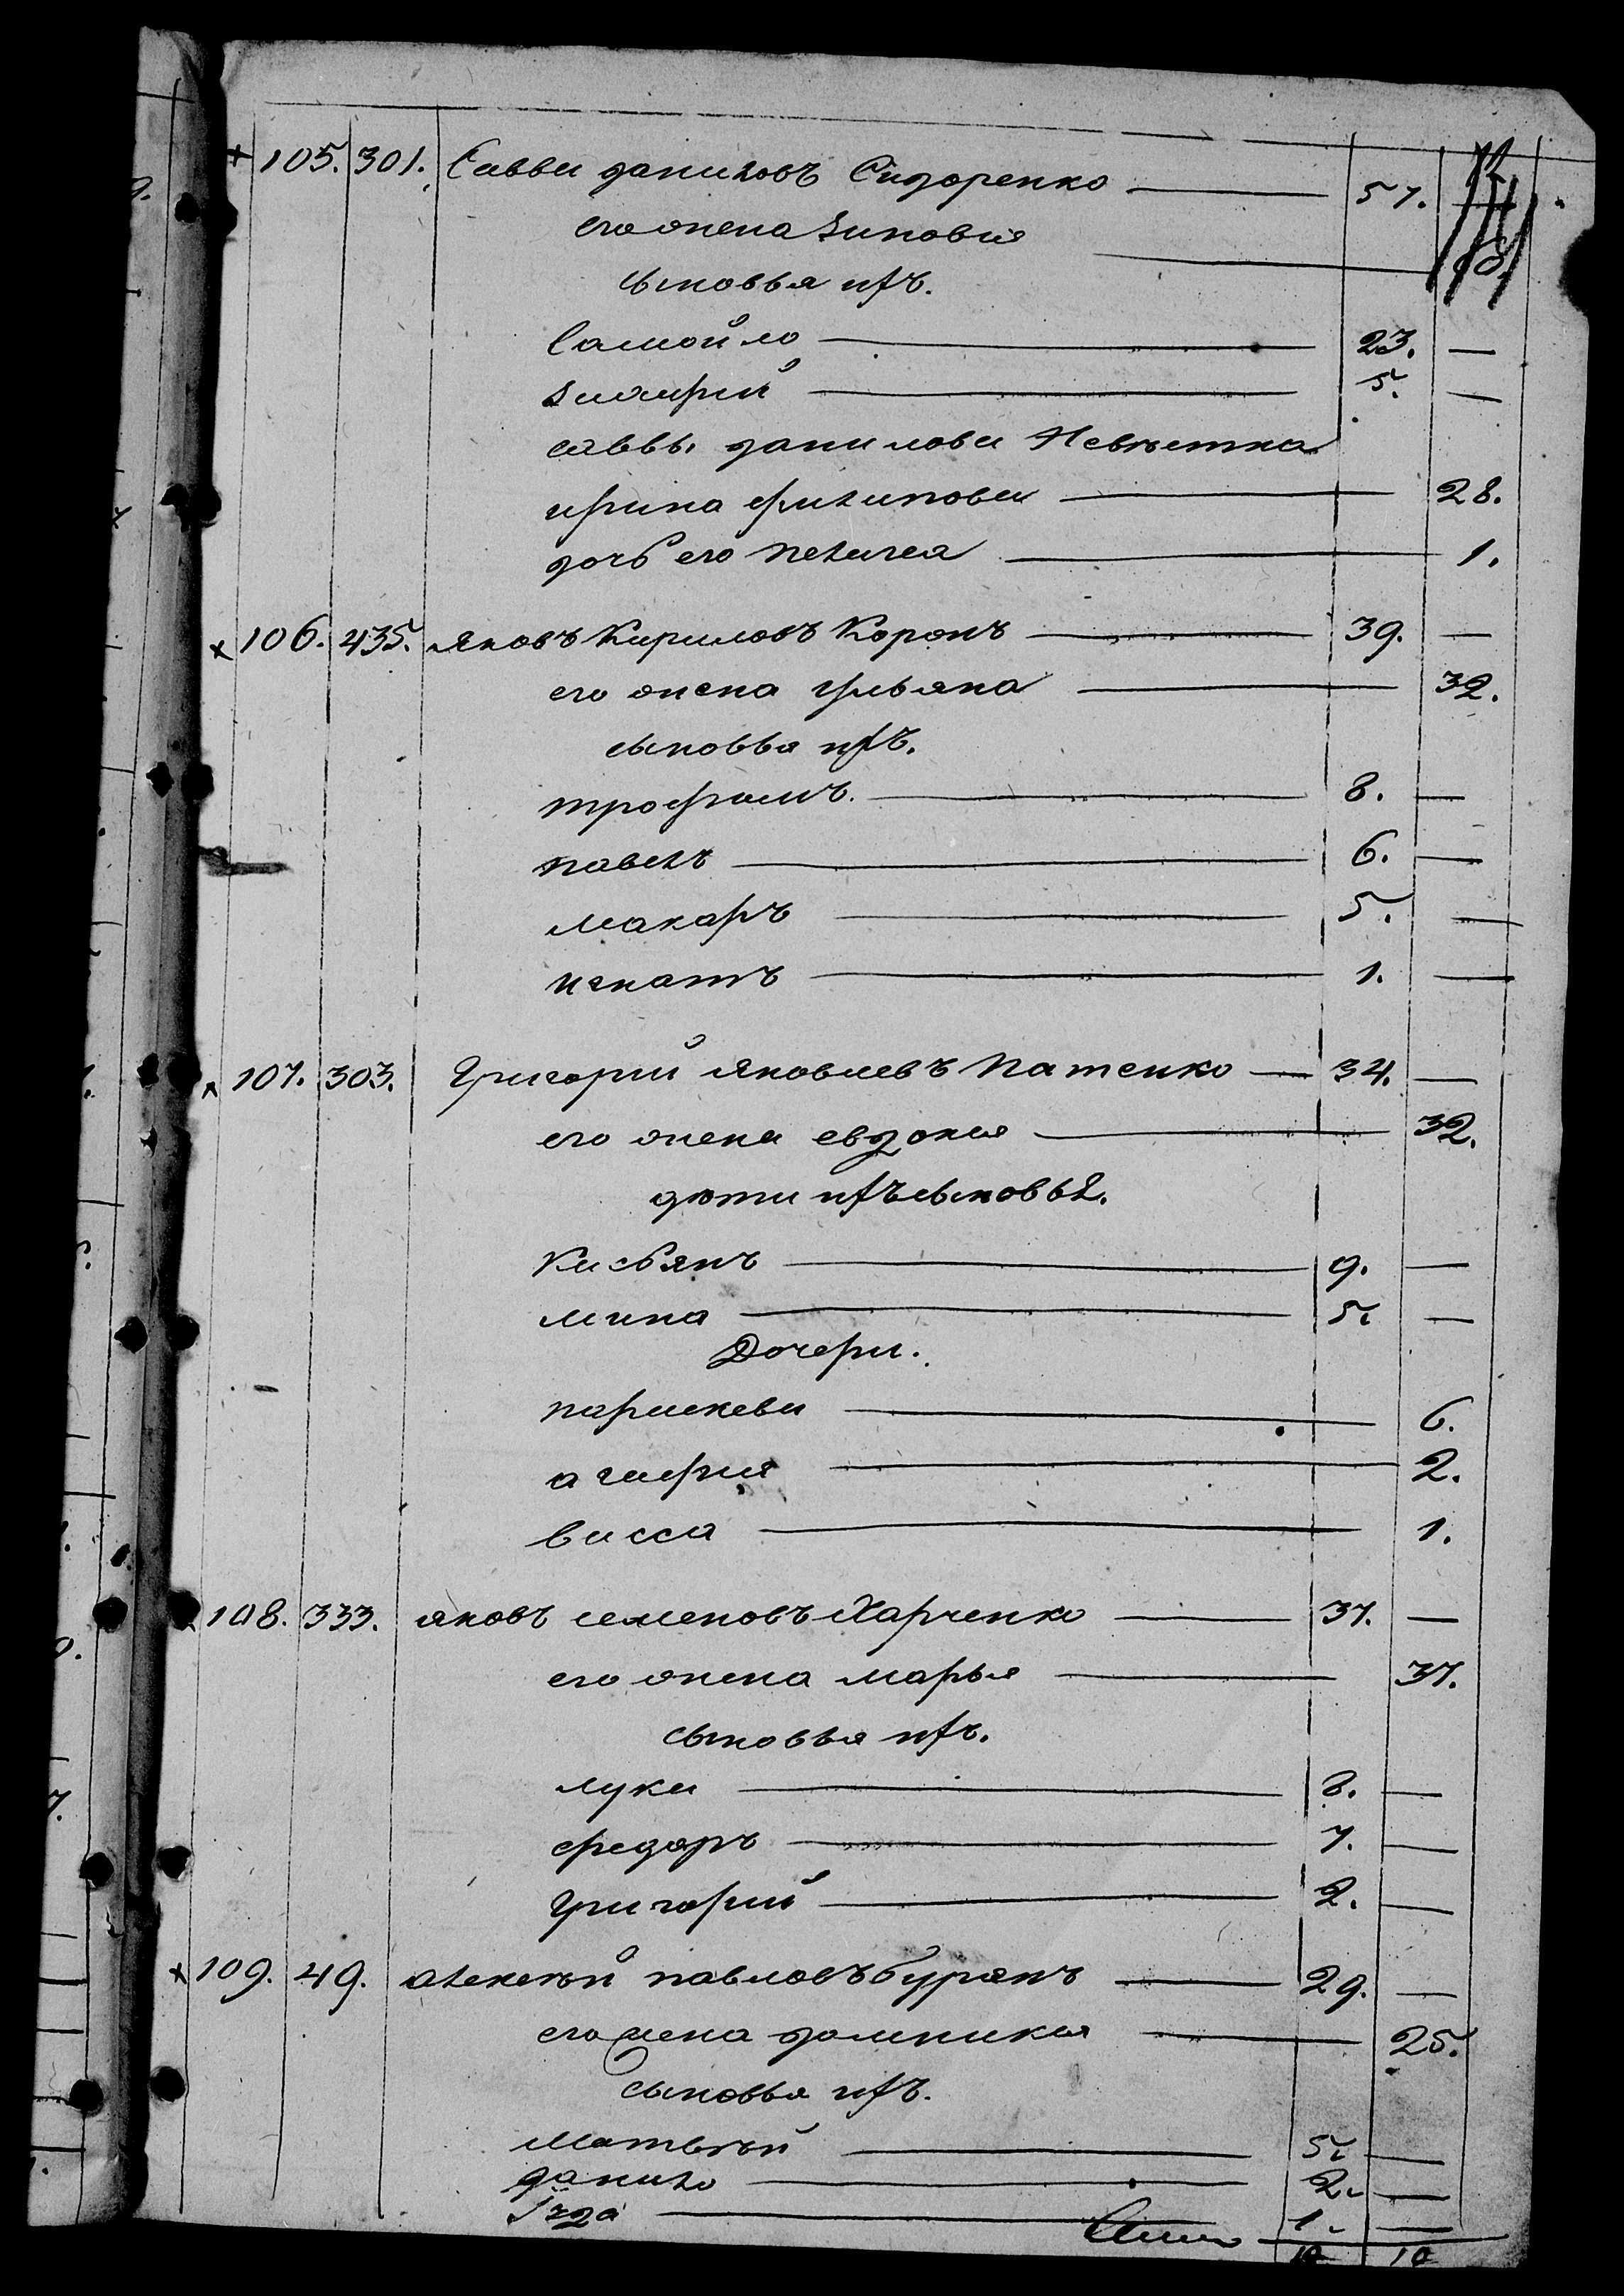 105. 301. Савва даниловъ Сидоренко 57.
его жена зиновия
сыновья ихъ.
Самойло 23. —
5. —
саввы данилова Невѣстка
ирина филипова 28.
дочь его пелагея 1.
106. 435. яковъ Кириловъ Коропъ 39. —
его жена ульяна 32.
сыновья ихъ.
трофимъ. 8. —
павелъ 6. —
макаръ 5. —
игнатъ 1. —
107. 303. Григорий яковлевъ патенко 34. —
его жена евдокия 32.
дѣти ихъ сыновья.
Касьянъ 9. —
мина 5. —
Дочери.
параскева 6.
агафия 2.
васса 1.
108. 333. яковъ семеновъ Харченко 37. —
его жена марья 37.
сыновья ихъ.
лука 8. —
федоръ 7. —
григорий 2. —
109. 49. алексѣй павловъ бурянъ 29. —
его жена домникия 25.
сыновья ихъ.
матвѣй 5. —
данило 2. —
1. —
10